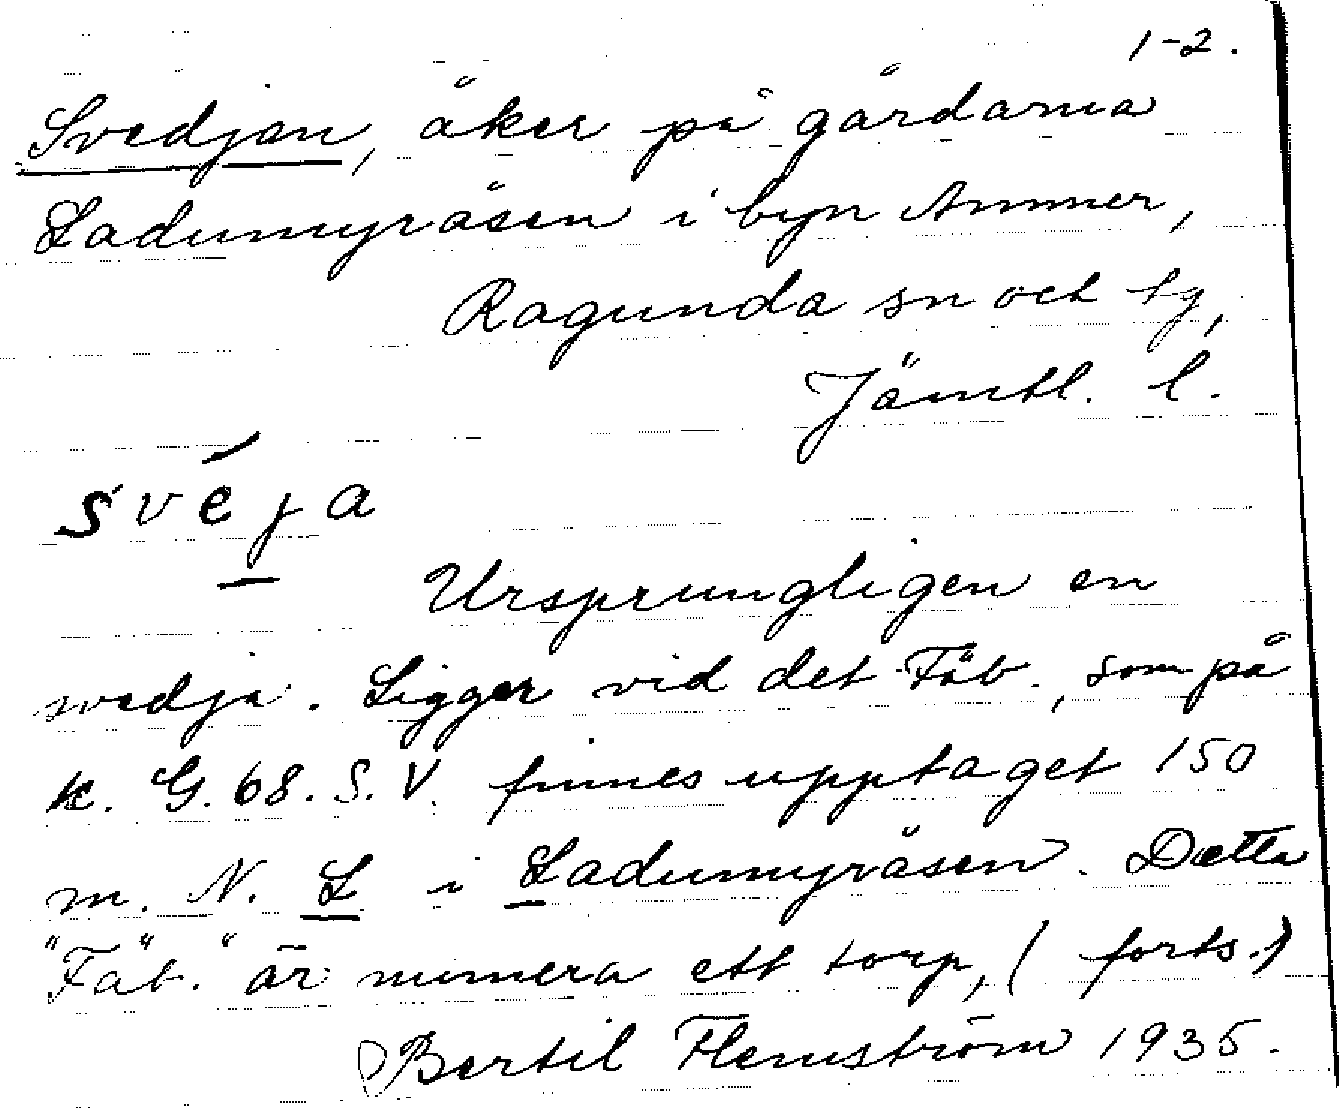 1-2.
Svedjan, åker på gårdarna
Ladumyråsen i byn Ammer,
Ragunda sn och tg,
Jämtl. l.
svéja
Ursprungligen en
svedja. Ligger vid det Fäb., som på
k. G. 68. S. V. finnes upptaget 150
m. N. L i Ladumyråsen. Detta
"Fäb." är numera ett torp, (forts.)
Bertil Flemström 1935.